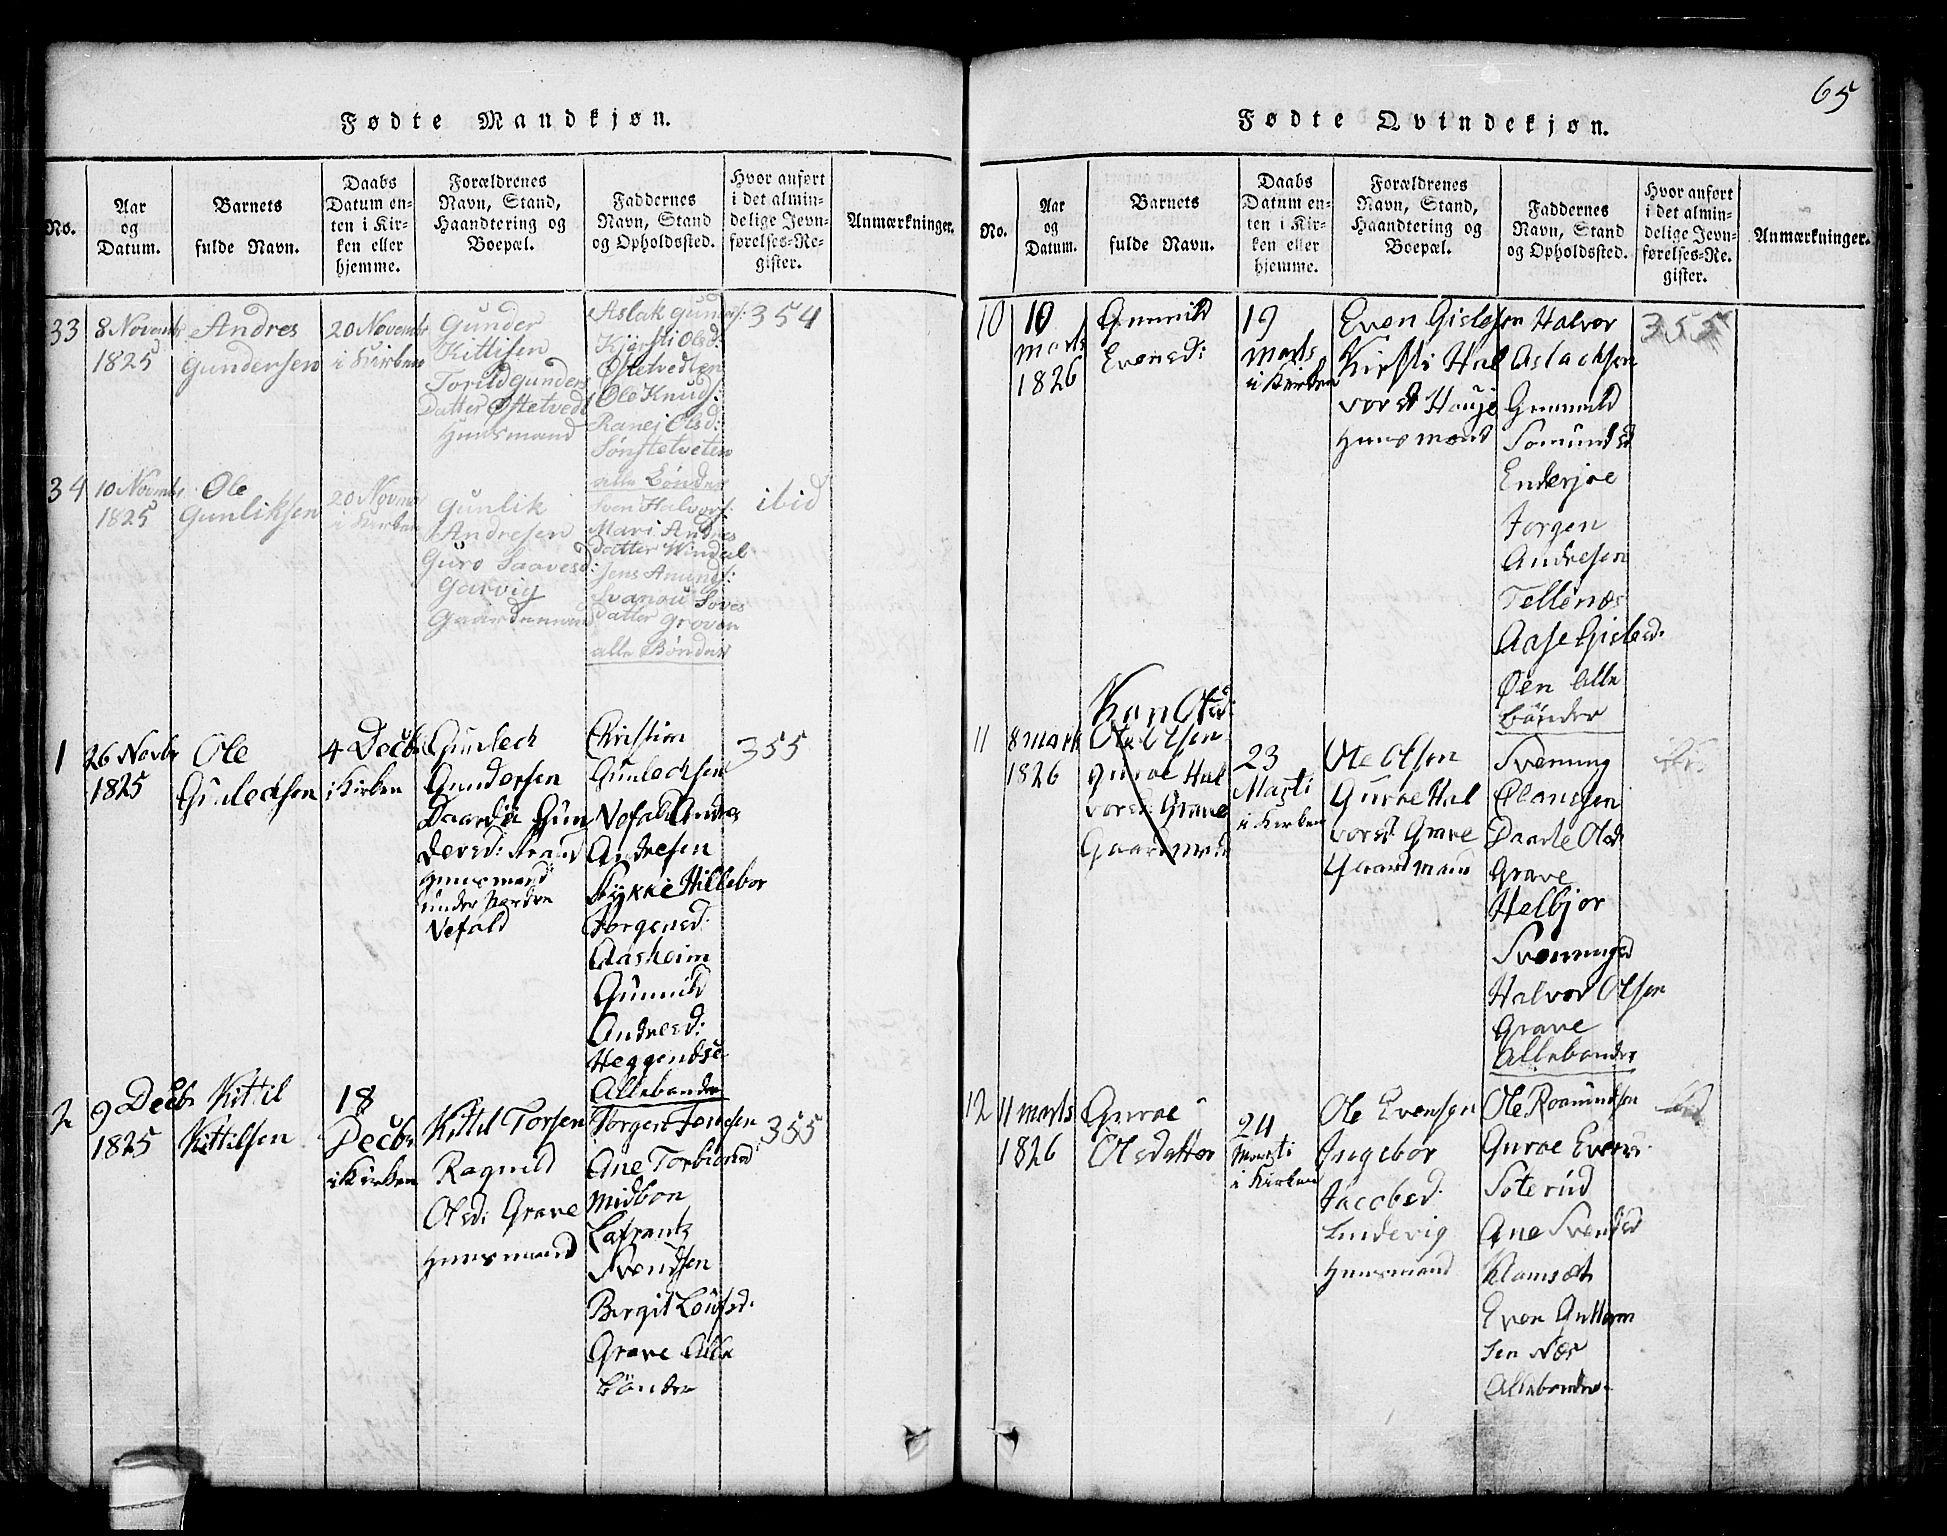 65
Fødte Mandkjøn.
No.
Aar
og
Datum.
Barnets
fulde Navn.
Daabs
Datum en-
ten i Kir-
ken eller
hjemme.
Forældrenes
Navn, Stand,
Haandtering og
Boepæl.
Faddernes
Navn, Stand
og Opholdssted.
Hvor anført
i det almin-
delige Jevn-
førelses-Re-
gister.
Anmærkninger.
33
8 Novembr
1825
Andres
Gundersen
20 Novembr
i Kirken
Gunder
Kittilsen
Torild gunders
Datter Østetvedt
Huusmand
Aslak gunders:
Kjersti Olsd:
Østetvedten
Ole Knuds:
Ranei Olsd:
Sønstetveten
alle Bønder
354
34
10 Novmbr
1825
Ole
Gunliksen
20 Novmr
i Kirken
Gunlik
Andresen
Guro Saavesd:
Garvig
Gaardemand
Sven Halvors:
Mari Andres
datter Windal
Jens Amunds:
Svanou Soves
datter Groven
alle Bønder
ibid
1
26 Novbr
1825
Ole
Gunlechsen
4 Decbr
i Kirken
Gunlech
Gundersen
Daardie Gun
dersd: Strand
Huusmand
under Nordre
Vefald
Christian
Gunlechsen
Vefald Andres
Andresen
Lykkie Hillebor
Jorgensd:
Aasheim
Gunnild
Andresd:
Heggendse
Allebønder
355
2
9 Decbr
1825
Kittil
Kittilsen
18
Decbr
i Kirken
Kittil Torsen
Ragnild
Olsd: Grave
Huusmand
Jorgen Jensen
Ane Torbionsd
Midbon
Lafrants
Svendsen
Bergit Loufsd:
Grave Alle
bönder
355
Fødte Qvindekjøn.
No.
Aar
og
Datum.
Barnets
fulde Navn.
Daabs
Datum en-
ten i Kir-
ken eller
hjemme.
Forældrenes
Navn, Stand,
Haandtering og
Boepæl.
Faddernes
Navn, Stand
og Opholdssted.
Hvor anført
i det almin-
delige Jevn-
førelses-Re-
gister.
Anmærkninger.
10
10
marts
1826
Gunnild
Evensd:
19
marts
i Kirken
Even Gislesen
Kirsti Hal
vorsd Houje
Huusmand
Halvor
Aslachsen
Gunnild
Somundsd
Enderjoe
Jorgen
Andresen
Tellenæs
Aase Gislesd:
Øen alle
bönder
355
11
8 mart
1826
Kari Olsd:
Ole Olsen
Guroe Hal
vorsd: Grave
Gaardmand
23
Marti
i Kirken
Ole Olsen
Guroe Hal
vorsd. Grave
Gaardmand
Svenung
Clausen
Daarte Olsd
Grave
Helbjor
Svenungsd
Halvor Olsen
Grave
Allebønder
12
11 marts
1826
Guroe
Olsdatter
24
Marti
i Kirken
Ole Evensen
Ingebor
Jacobsd.
Lundevig
Huusmand
Ole Roamundsen
Guroe Evensd.
Soterud
Ane Svendsd
Klamsæt
Even Guttorm
sen Næs
Allebønder